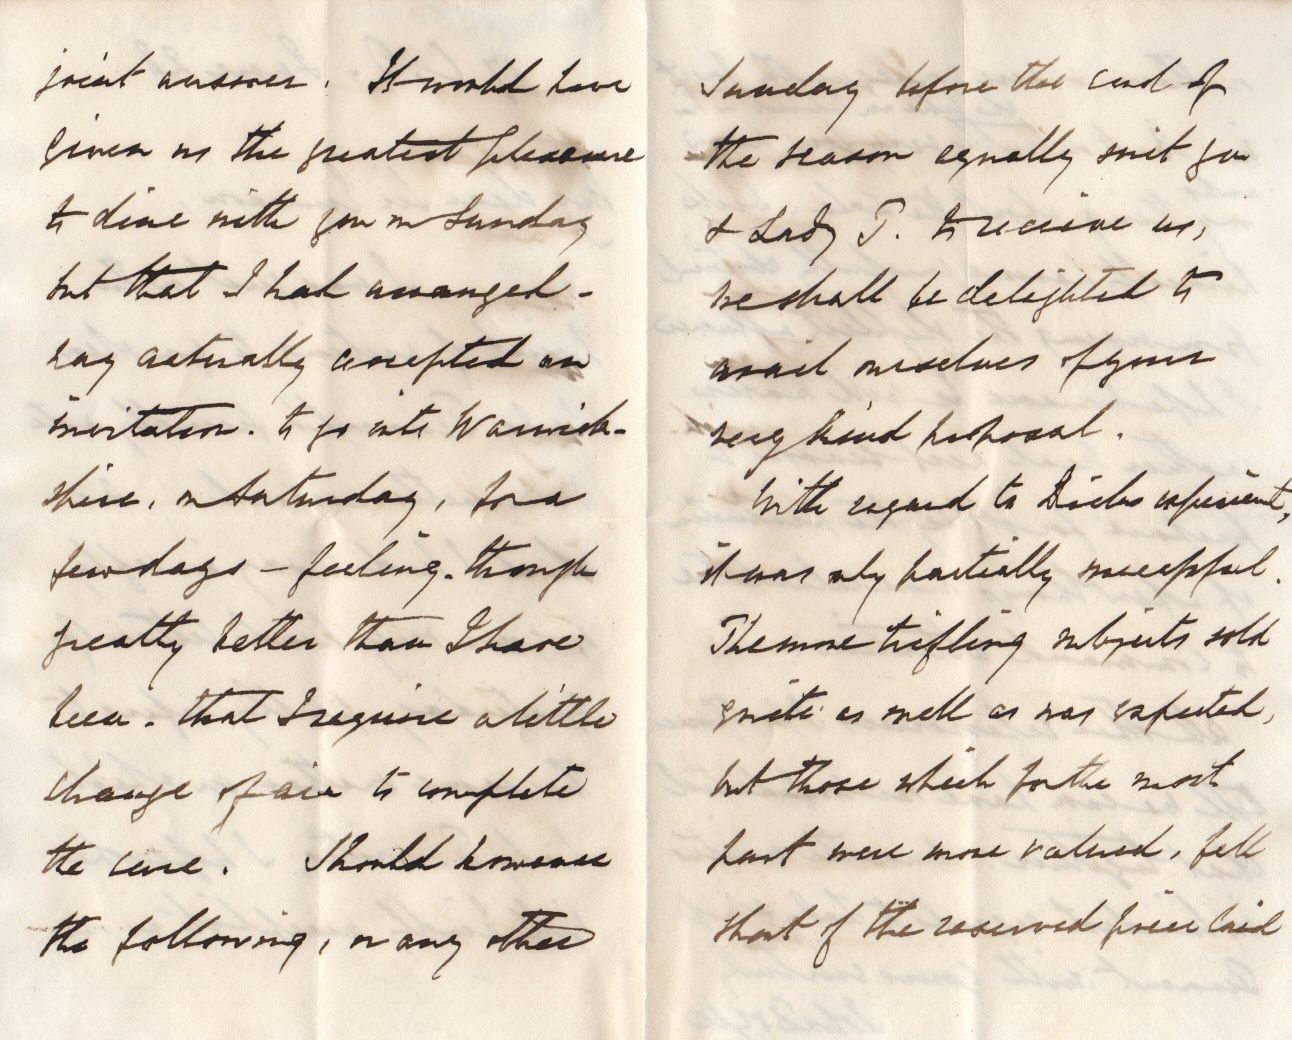 joint answer. It would have
given us the greatest pleasure
to dine with you on Sunday
but that I had arranged -
nay actually accepted an
invitation. to go into Warwick-
shire, on Saturday, for a
few days - feeling. though
greatly better than I have
been. that I require a little
change of air to complete
the cure. Should however
the following, or any other
Sunday before the end of
the season equally suit you
& Lady T. to receive us,
we shall be delighted to
avail ourselves of your
very kind proposal.
With regard to Dicks experiment,
it was only partially successful.
The more trifling subjects sold
quite as well as was expected,
but those which for the most
part were more valued, fell
short of the reserved price laid